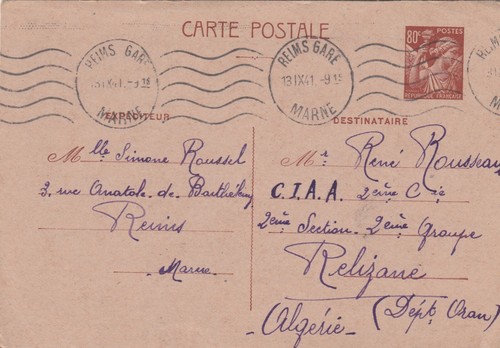 CARTE POSTALE
80c POSTES
RÉPUBLIQUE FRANÇAISE
REIMS GARE
13 IX 41 -9 15
MARNE
REIMS GARE
13 IX 41 -9 15
MARNE
REIM
MA
EXPÉDITEUR
Mlle Simone Roussel
3, rue Anatole de Barthélemy
Reims
Marne
DESTINATAIRE
Mr René Rousseau
C.I.A.A. 2ème Cie
2ème Section - 2ème Groupe
Relizane
(Dépt Oran)
Algérie